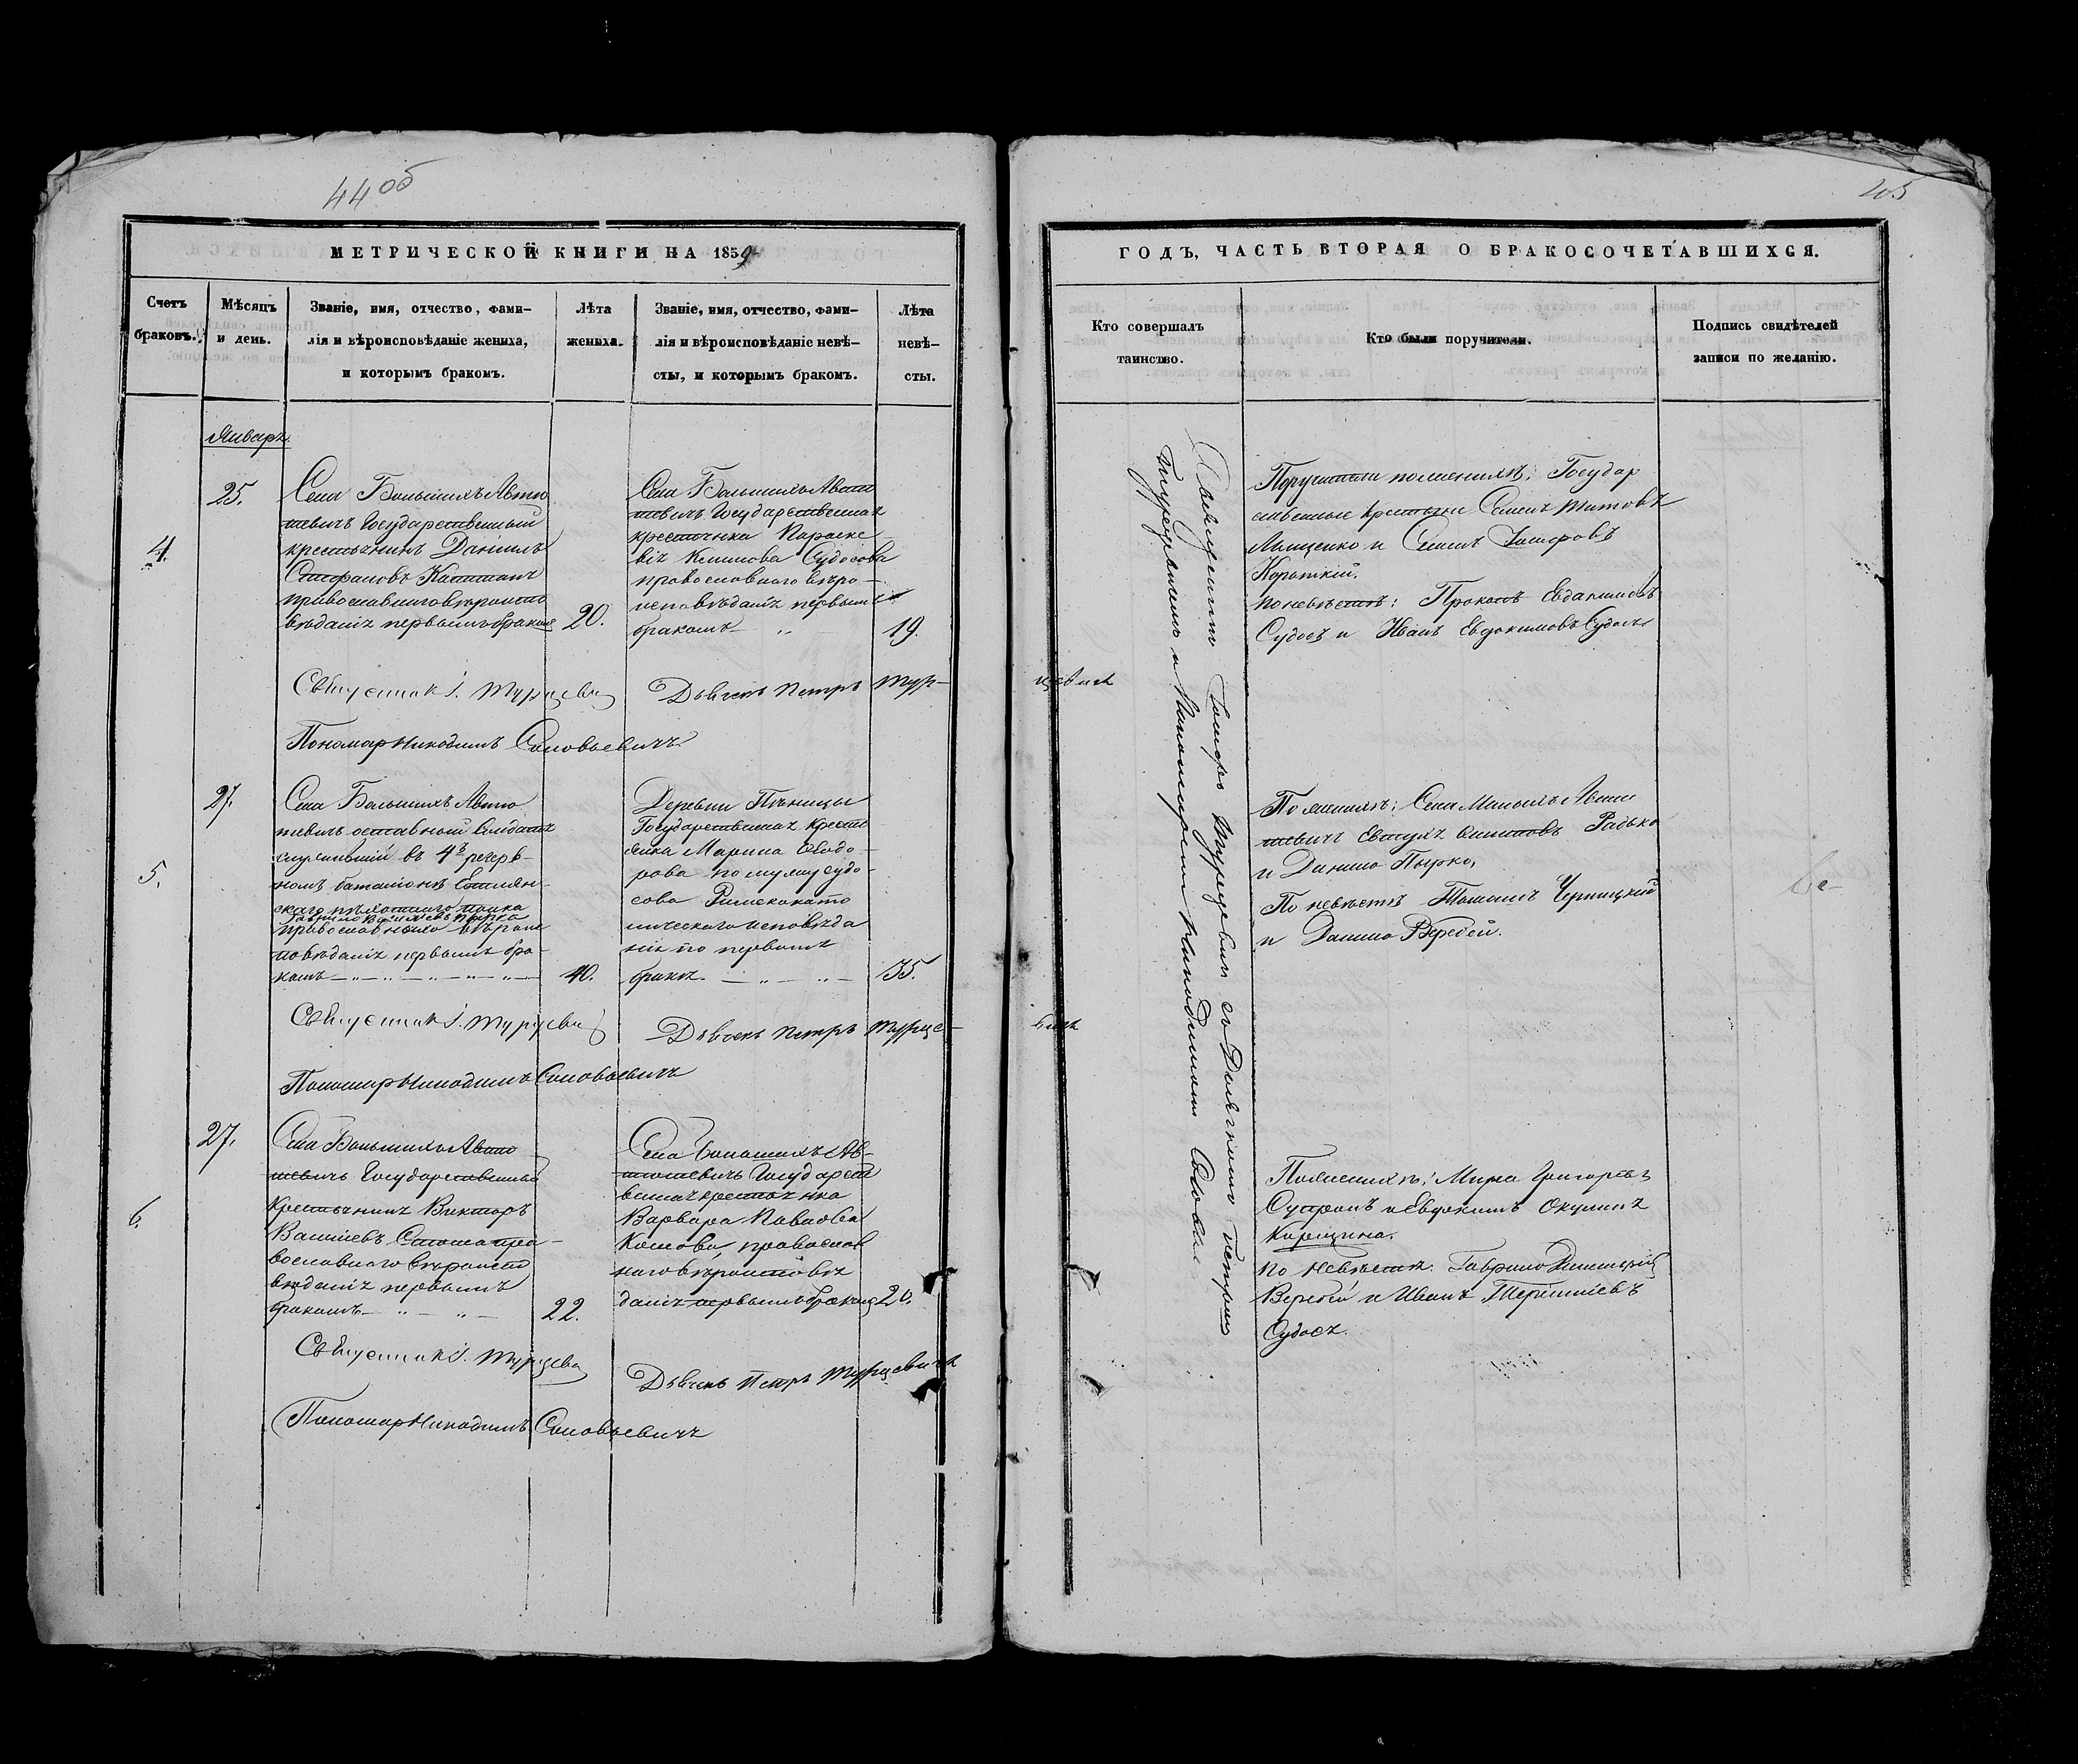 44 об
МЕТРИЧЕСКОЙ КНИГИ НА 1859
Счетъ браковъ.
Мѣсяцъ и день.
Званіе, имя, отчество, фами-
лія и вѣроисповѣданіе жениха,
и которымъ бракомъ.
Лѣта
жениха.
Званіе, имя, отчество, фами-
лія и вѣроисповѣданіе невѣ-
сты, и которымъ бракомъ.
Лѣта
невѣ-
сты.
Январь.
4.
25.
Села Большихъ Автю
тевичъ Государственный
крестьянинъ Даніилъ
Стефановъ
православнаго вѣроиспо
вѣданія первымъ бракомъ
20.
Села Большихъ Автю
тевичъ Государственная
крестянка Параске
вія Климова Судосова
православнаго вѣро-
исповѣданія первымъ
бракомъ
19.
Священникъ І. Турцевич
Дьячекъ Петръ Тур-
цевичъ
Пономар Никодимъ Соловьевичъ
5.
27.
Села Большихъ Автю
тевичъ отставный Солдатъ
служившій въ 4ъ резерв-
номъ баталіонѣ
скаго пѣхотнаго полка
Гаврило Василіевъ Пырко
православнаго вѣроис
повѣданія первымъ бра-
комъ
40.
Деревни
Государственная крестя
янка Марина Ѳеодо-
рова по мужу Судо-
сова Римскокато
лическаго исповѣда
нія по первомъ
бракѣ
35.
Священникъ І. Турцевич
Дьячекъ Петръ Турце-
вичъ
Пономар Никодимъ Соловьевичъ
6.
27.
Села Большихъ Автю
тевичъ Государственный
Крестьянинъ Викторъ
Василіевъ пра-
вославнаго вѣроиспо
вѣданія первымъ
бракомъ
22.
Села Большихъ Ав-
тютевичъ Государст
венная крестянка
Варвара Павлова
православ
наго вѣроисповѣ
данія первымъ бракомъ
20.
Священникъ І. Турцевич
Дьячекъ Петръ Турцевичъ
Пономар Никодимъ Соловьевичъ
ГОДЪ, ЧАСТЬ ВТОРАЯ О БРАКОСОЧЕТАВШИХСЯ.
Кто совершалъ
таинство.
Кто были поручители.
Подпись свидѣтелей
записи по желанію.
Священникъ Турцевич съ Дьячкомъ Петромъ
Турцевичемъ и Пономаремъ Никодимомъ
Поручители по женихѣ: Государ
ственные крестьяне Семенъ Титовъ
и Семенъ
Короткій.
по невѣстѣ: Прокопъ Евдокимовъ
Судосъ и Иванъ Евдокимовъ Судосъ
По женихѣ: Села Малыхъ Автю
тевичъ Радько
и Данило Пырко,
По невѣстѣ Томашъ Черницкій
и Данило Веребей.
По женихѣ: Мирка Григорьев
и Евдокимъ
По невѣстѣ. Гаврило
Веребей и Иванъ Терентіевъ
Судосъ.